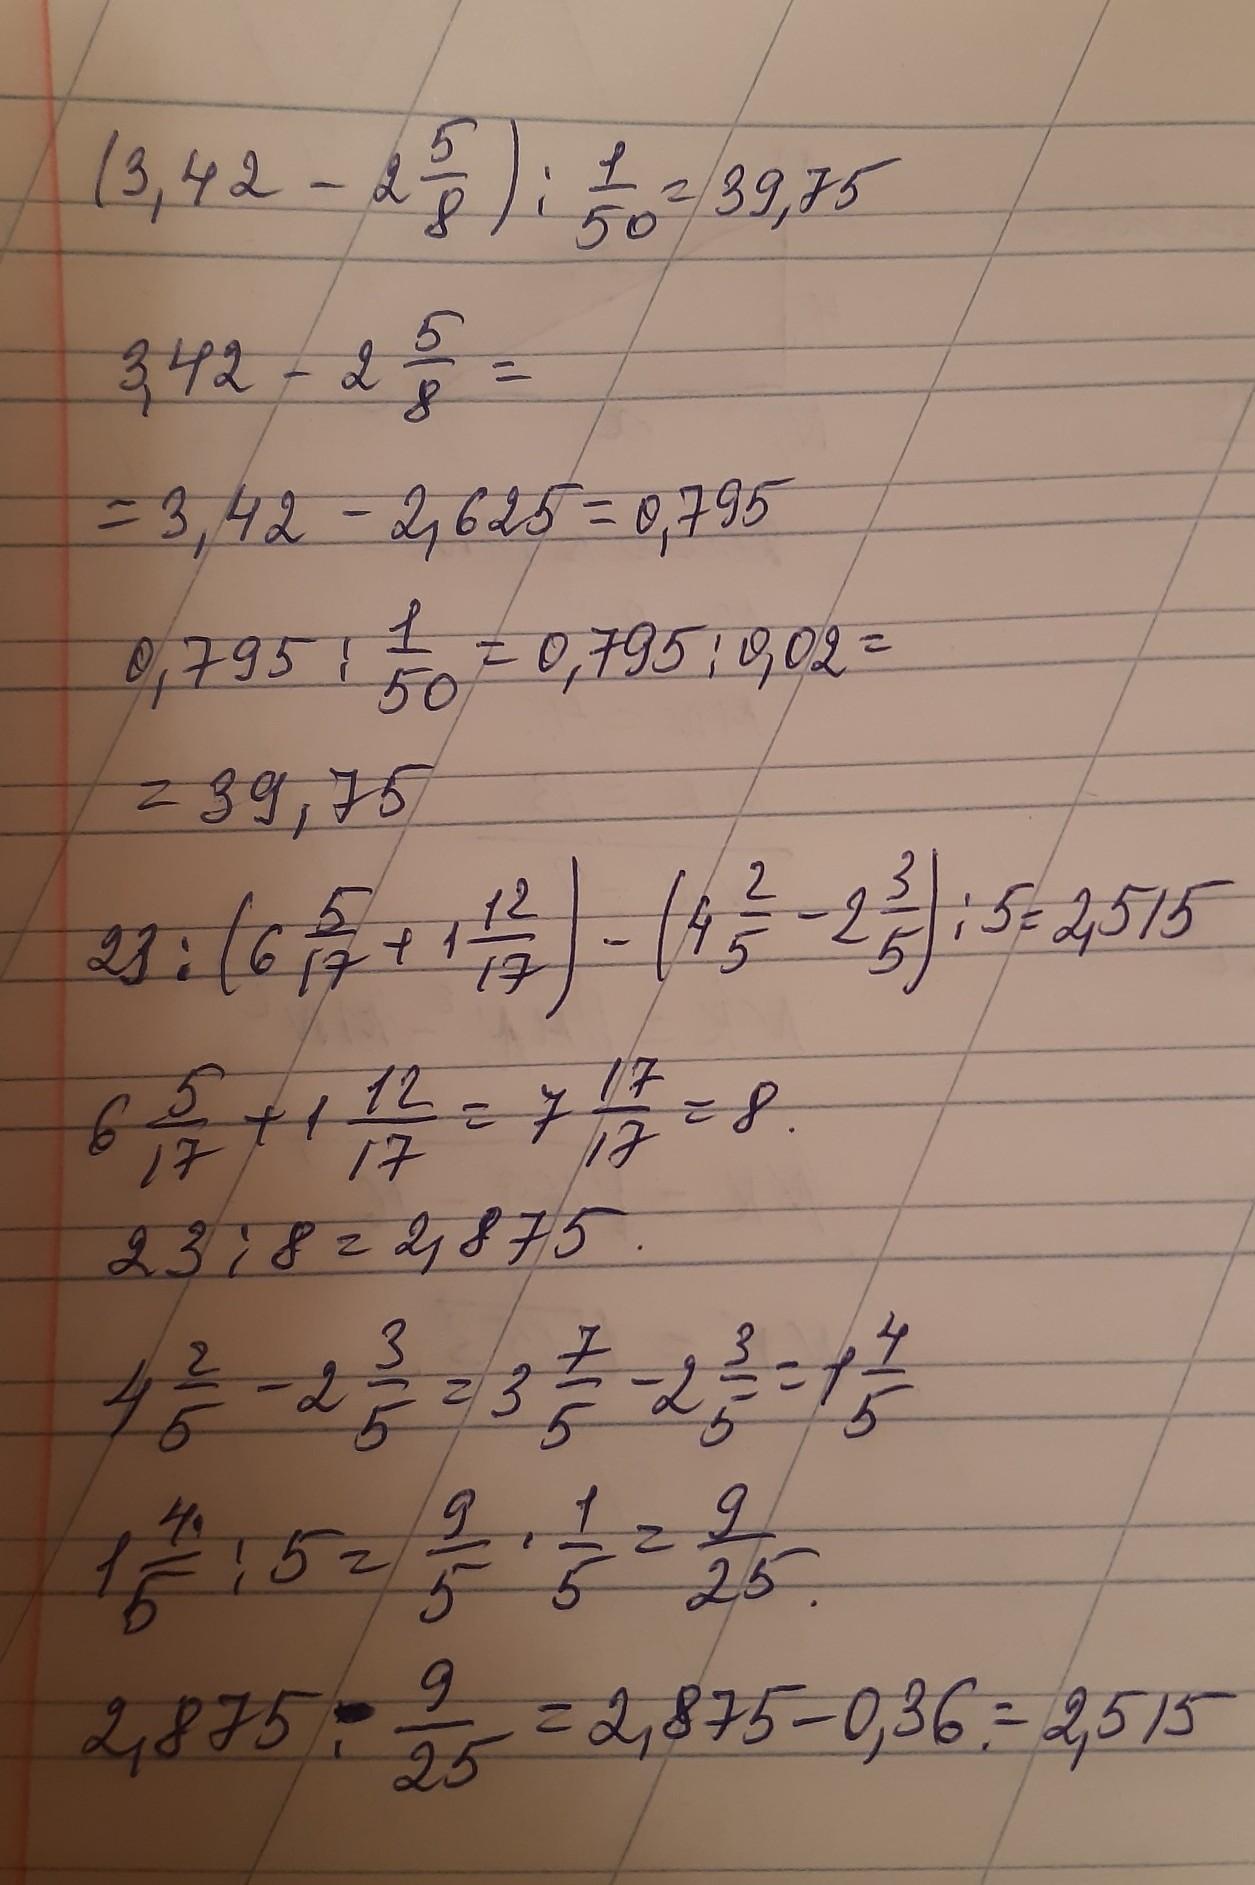 (3,42 - 2 5/8) : 1/50 = 39,75
3,42 - 2 5/8 =
= 3,42 - 2,625 = 0,795
0,795 : 1/50 = 0,795 : 0,02 =
= 39,75
23 : (6 5/17 + 1 12/17) - (4 2/5 - 2 3/5) : 5 = 2,515
6 5/17 + 1 12/17 = 7 17/17 = 8.
23 : 8 = 2,875.
4 2/5 - 2 3/5 = 3 7/5 - 2 3/5 = 1 4/5
1 4/5 : 5 = 9/5 · 1/5 = 9/25.
2,875 - 9/25 = 2,875 - 0,36 = 2,515